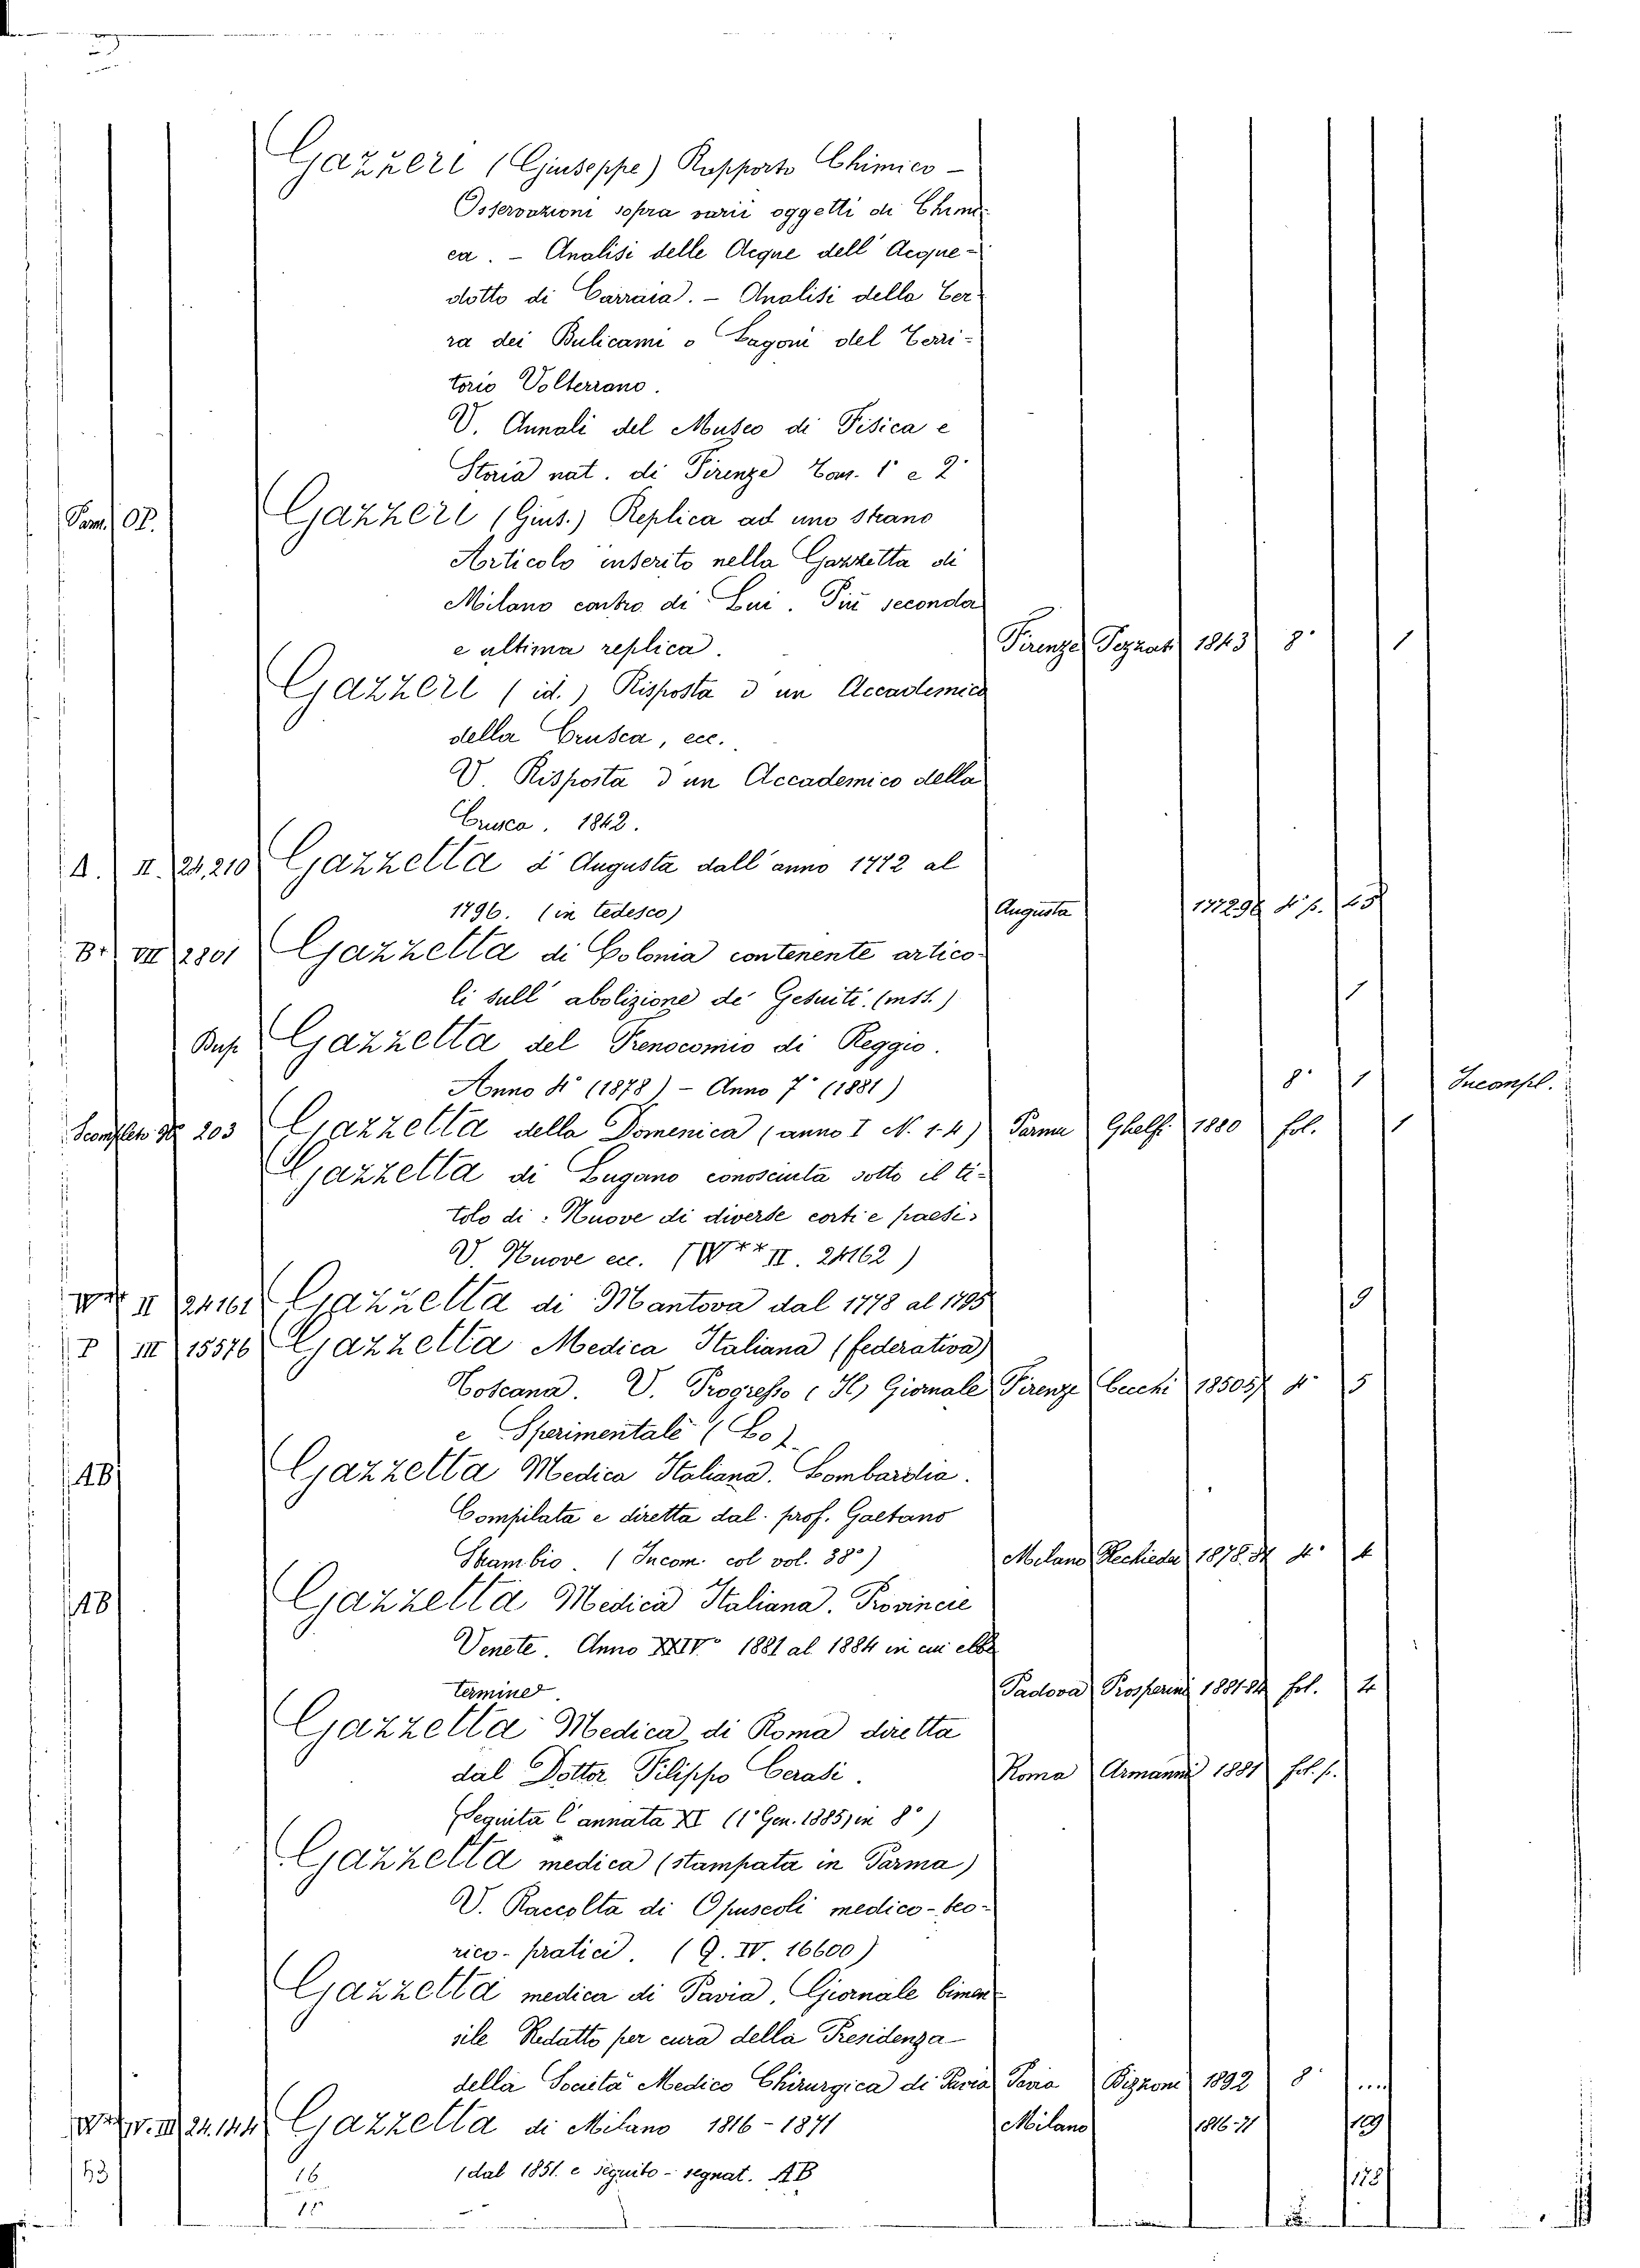 Gazzeri (Giuseppe) Rapporto Chimico -
Osservazioni sopra varii oggetti di Chimi-
ca. - Analisi delle Acque dell' Acque-
dotto di Carraia. - Analisi della Ter-
ra dei Bulicami o Lagoni del Terri-
torio Volterrano.
V. Annali del Museo di Fisica e
Storia nat. di Firenze Tom. 1° e 2°
Pam. OP. Gazzeri (Gius.) Replica ad uno strano
Articolo inserito nella Gazzetta di
Milano contro di Lui. Più seconda
e ultima replica. Firenze Pezzati 1843 8° 1
Gazzeri (id.) Risposta d'un Accademico
della Crusca, ecc.
V. Risposta d'un Accademico della
Crusca. 1842.
A. II. 24,210 Gazzetta d' Augusta dall' anno 1772 al
1796. (in tedesco) Augusta 1772.96 4° p. 25
B* VII 2801 Gazzetta di Colonia contenente artico-
li sull' abolizione de' Gesuiti. (mss.) 1
Bus. Gazzetta del Frenocomio di Reggio.
Anno 4° (1878) - Anno 7° (1881) 8° 1 Incompl.
203 Gazzetta della Domenica (anno I N. 1-4) Parma Ghelfi 1880 fol. 1
Gazzetta di Lugano conosciuta sotto il ti-
tolo di: Nuove di diverse corti e paesi.
V. Nuove ecc. (W** II. 24162)
W** II 24161 Gazzetta di Mantova dal 1778 al 1795 9
P III 15576 Gazzetta Medica Italiana (federativa)
Toscana. V. Progresso (Il) Giornale Firenze Cecchi 1850.57 4° 5
e Sperimentale (Lo).
AB Gazzetta Medica Italiana. Lombardia.
Compilata e diretta dal prof. Gaetano
Strambio. (Incom. col vol. 38°) Milano Rechiedei 1878.84 4° 4
AB Gazzetta Medica Italiana. Provincie
Venete. Anno XXIV° 1881 al 1884 in cui ebbe
termine. Padova Prosperini 1881-84 fol. 4
Gazzetta Medica di Roma diretta
dal Dottor Filippo Cerasi. Roma Armanni 1881 fol. p.
Seguita l'annata XI (1° Gen. 1885) in 8°)
Gazzetta medica (stampata in Parma)
V. Raccolta di Opuscoli medico-teo-
rico-pratici. (Q. IV. 16600)
Gazzetta medica di Pavia, Giornale bimen-
sile Redatto per cura della Presidenza
della Società Medico Chirurgica di Pavia Pavia Bizzoni 1892 8° ....
24.144 Gazzetta di Milano 1816-1871 Milano 1816-71 109
(dal 1851. e seguito - segnat. AB
16